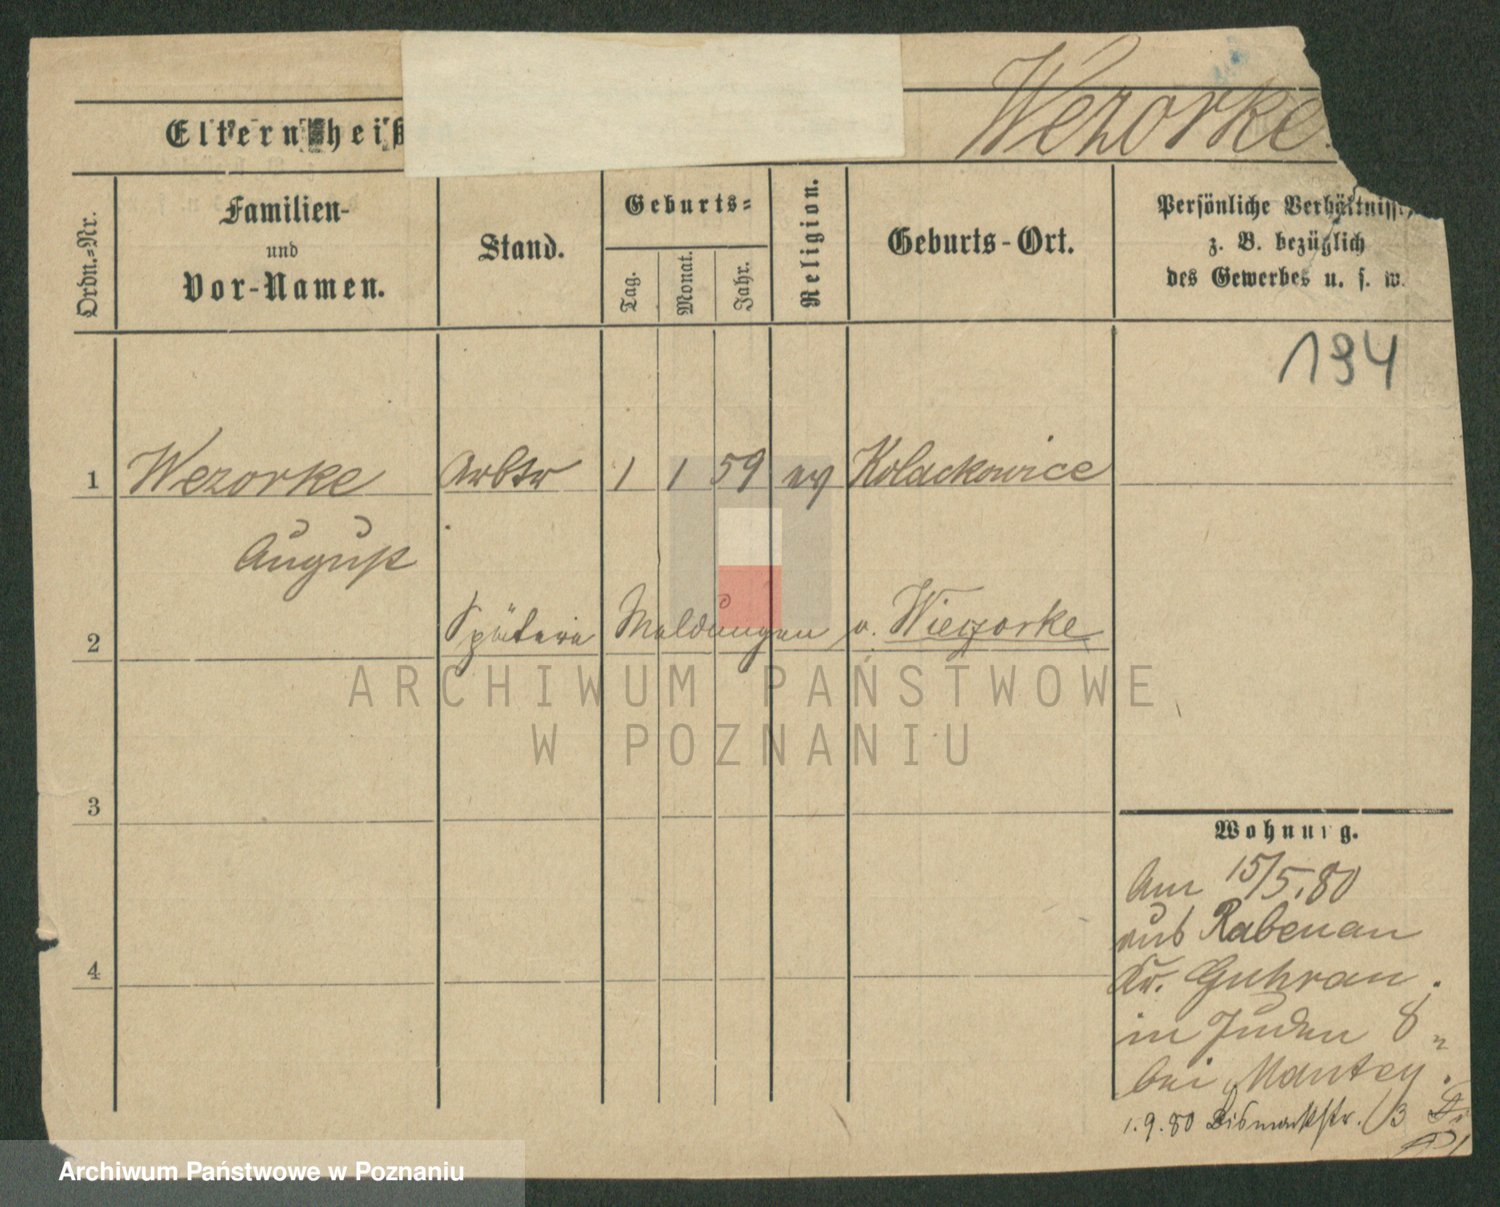 Wezorke.
Eltern heiß
Ordn.-Nr.
Familien-
und
Vor-Namen.
Stand.
Geburts-
Tag.
Monat.
Jahr.
Religion.
Geburts-Ort.
Persönliche Verhältniss
z. B. bezüglich
des Gewerbes u. s. w.
194
1 Wezorke Arbtr 1 1 59 ev Kolackowice
August
2 Spätere Meldungen v. Wiezorke
ARCHIWUM PAŃSTWOWE
W POZNANIU
3
Wohnung.
Am 15/5.80
aus Rabenau
Kr. Guhrau.
4
in Juden 8
bei Mantey.
1.9.80 Bismarkstr. 13
Archiwum Państwowe w Poznaniu